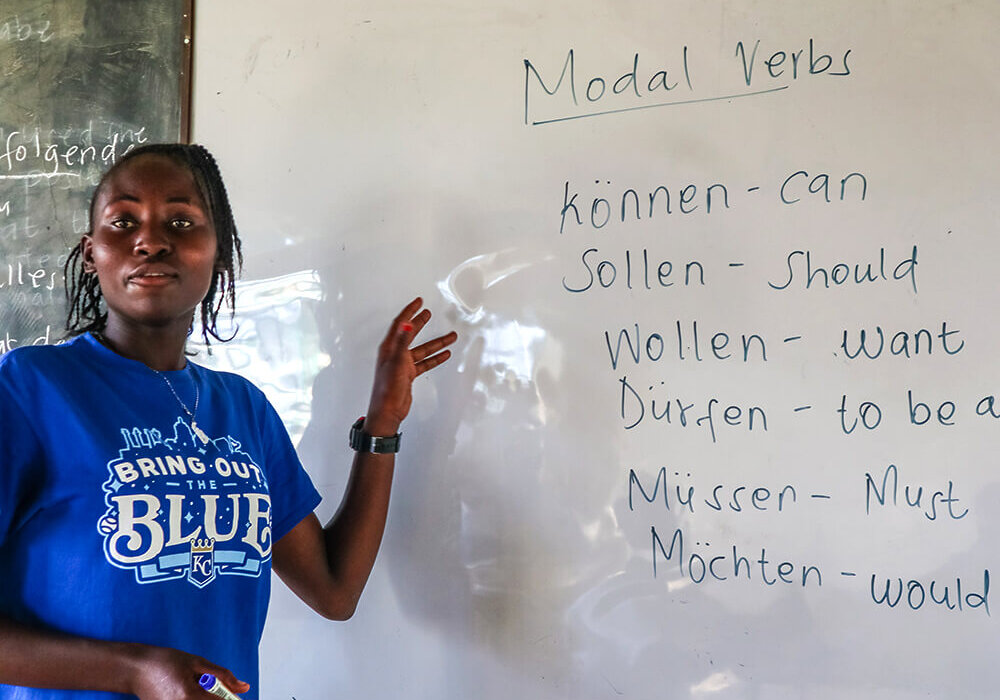 folgende
lles
Modal Verbs
können - can
Sollen - Should
Wollen - want
Dürfen - to be a
Müssen - Must
Möchten - would
BRING OUT
- THE -
BLUE
KC